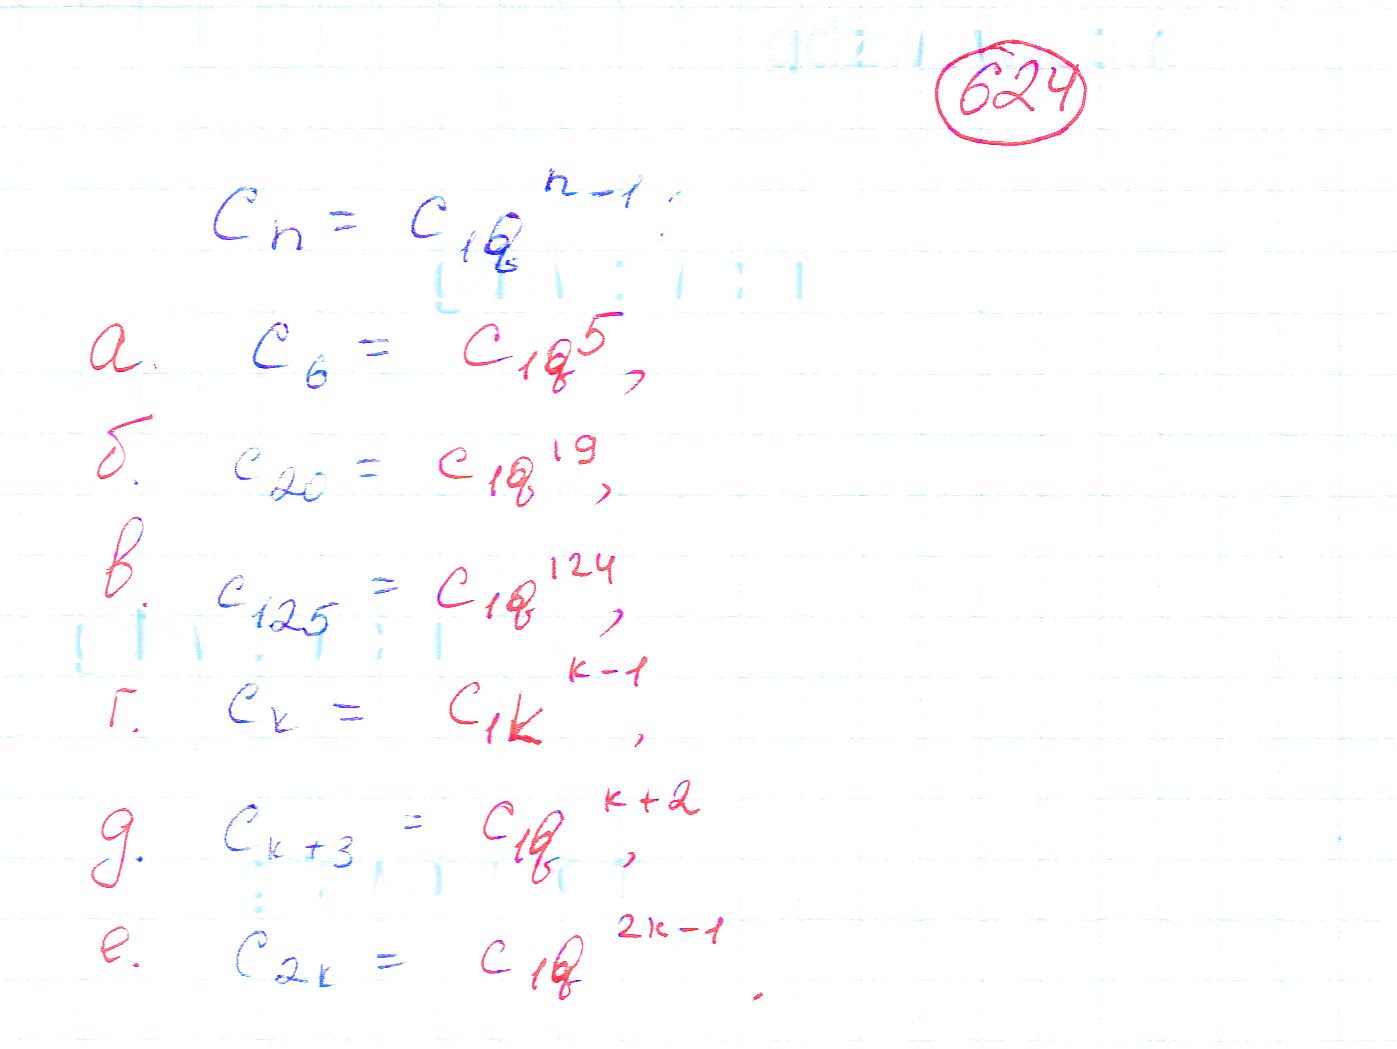 624
Cₙ = C₁qⁿ⁻¹.
а. C₆ = C₁q⁵,
б. C₂₀ = C₁q¹⁹,
в. C₁₂₅ = C₁q¹²⁴,
г. Cₖ = C₁kᵏ⁻¹,
д. Cₖ₊₃ = C₁qᵏ⁺²,
е. C₂ₖ = C₁q²ᵏ⁻¹.